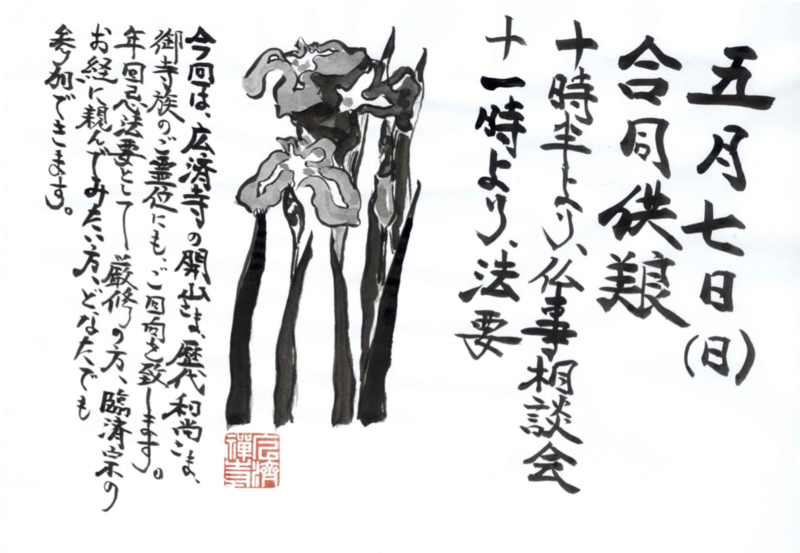 五月七日(日)
合同供養
十時半より、仏事相談会
十一時より、法要
今回は、広済寺の開山さま、歴代和尚さま、
御寺族のご霊位にも、ご回向を致します。
年回忌法要として厳修の方、臨済宗の
お経に親んでみたい方、どなたでも
参列できます。
広濟
禅寺